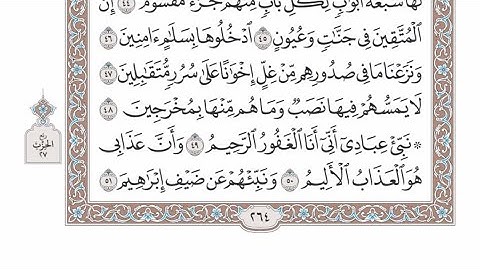 لَهَا سَبۡعَةُ أَبۡوَٰبٖ لِّكُلِّ بَابٖ مِّنۡهُمۡ جُزۡءٞ مَّقۡسُومٌ ٤٤ إِنَّ
ٱلۡمُتَّقِينَ فِي جَنَّٰتٖ وَعُيُونٍ ٤٥ ٱدۡخُلُوهَا بِسَلَٰمٍ ءَامِنِينَ ٤٦
وَنَزَعۡنَا مَا فِي صُدُورِهِم مِّنۡ غِلٍّ إِخۡوَٰنًا عَلَىٰ سُرُرٖ مُّتَقَٰبِلِينَ ٤٧
لَا يَمَسُّهُمۡ فِيهَا نَصَبٞ وَمَا هُم مِّنۡهَا بِمُخۡرَجِينَ ٤٨
۞ نَبِّئۡ عِبَادِيٓ أَنِّيٓ أَنَا ٱلۡغَفُورُ ٱلرَّحِيمُ ٤٩ وَأَنَّ عَذَابِي
هُوَ ٱلۡعَذَابُ ٱلۡأَلِيمُ ٥٠ وَنَبِّئۡهُمۡ عَن ضَيۡفِ إِبۡرَٰهِيمَ ٥١
ربع
الحزب
٢٧
٢٦٤